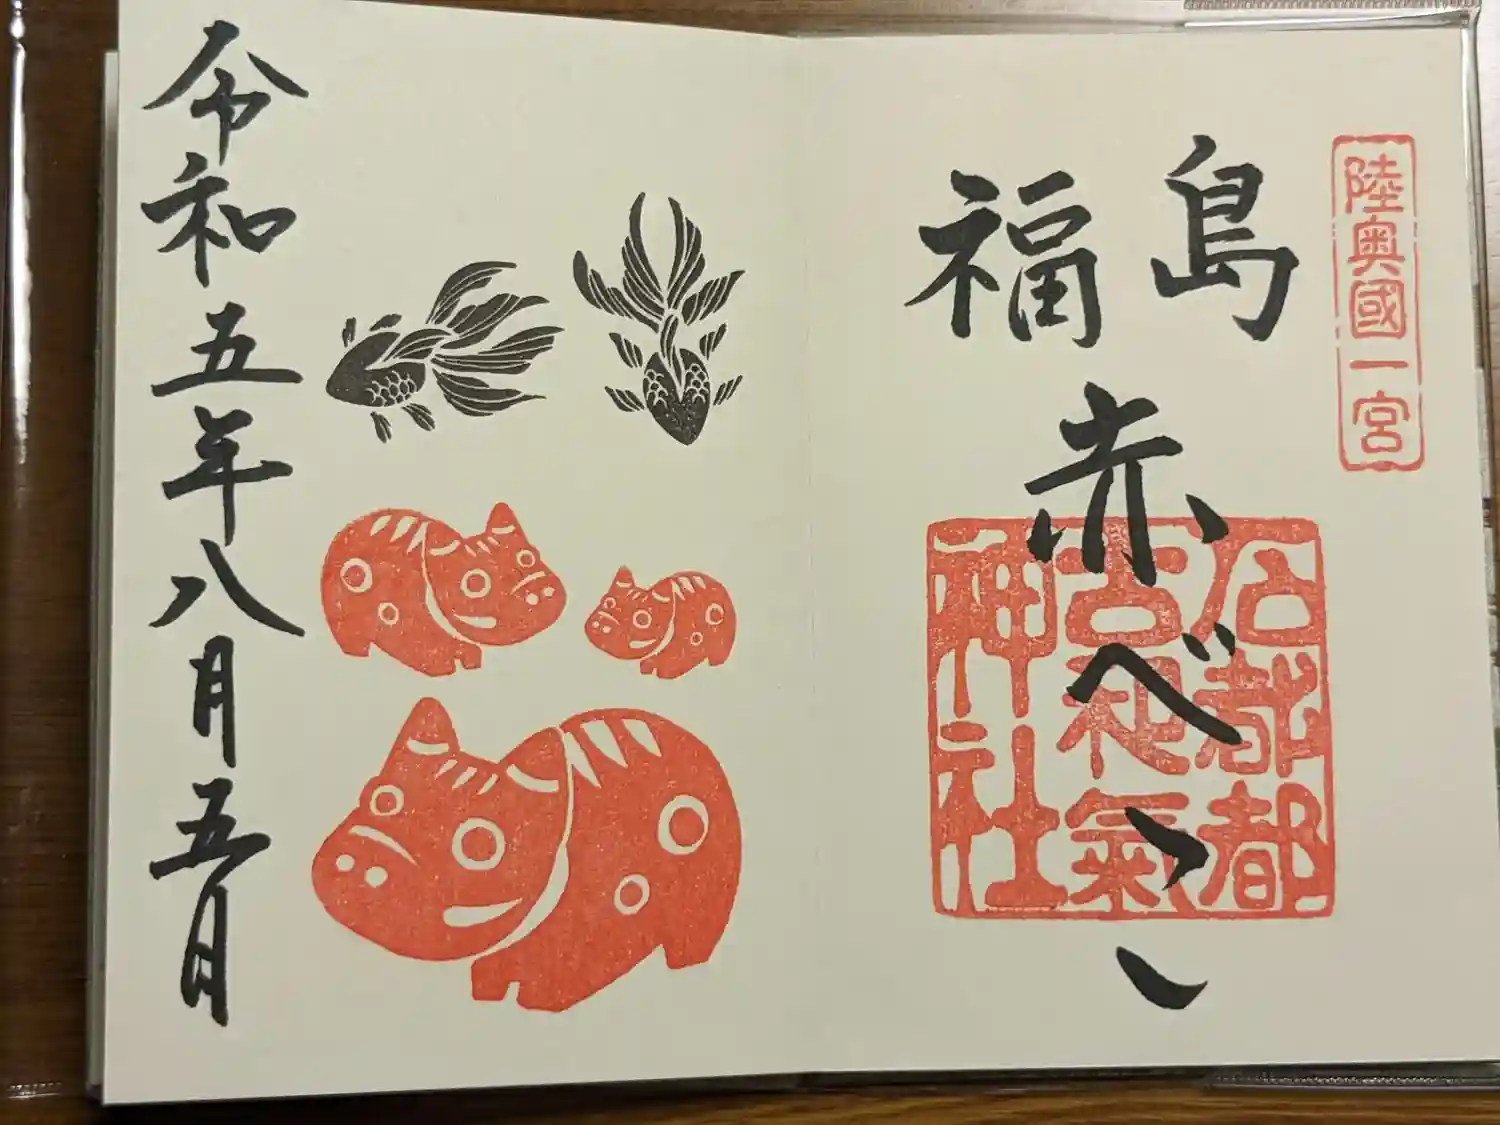 陸奥國一宮
福島
赤べこ
石都都
古和氣
神社
令和五年八月五日